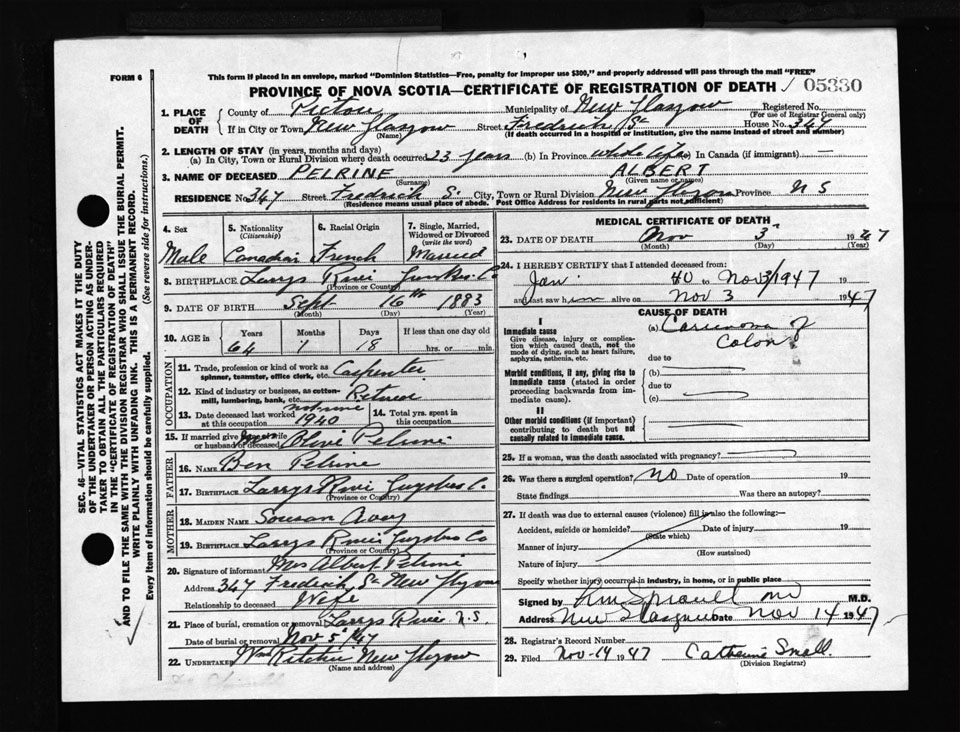 FORM 6
This form if placed in an envelope, marked "Dominion Statistics—Free, penalty for improper use $300," and properly addressed will pass through the mail "FREE"
PROVINCE OF NOVA SCOTIA—CERTIFICATE OF REGISTRATION OF DEATH 05330
1. PLACE OF DEATH County of Pictou Municipality of New Glasgow Registered No.
(For use of Registrar General only)
If in City or Town New Glasgow Street Fredrich St House No. 347
(Name) (If death occurred in a hospital or institution, give the name instead of street and number)
2. LENGTH OF STAY (in years, months and days)
(a) In City, Town or Rural Division where death occurred 23 years (b) In Province whole life (c) In Canada (if immigrant) —
3. NAME OF DECEASED PELRINE ALBERT
(Surname) (Given name or names)
RESIDENCE No. 347 Street Fredrich St. City, Town or Rural Division New Glasgow Province N S
(Residence means usual place of abode. Post Office Address for residents in rural parts not sufficient)
4. Sex 5. Nationality 6. Racial Origin 7. Single, Married, Widowed or Divorced
(Citizenship) (write the word)
Male Canadian French Married
8. BIRTHPLACE Larrys River Co
(Province or Country)
9. DATE OF BIRTH Sept 16th 1883
(Month) (Day) (Year)
10. AGE in Years Months Days If less than one day old
64 1 18 hrs. or min.
OCCUPATION
11. Trade, profession or kind of work as spinner, teamster, office clerk, etc. Carpenter
12. Kind of industry or business, as cotton-mill, lumbering, bank, etc. Retired
13. Date deceased last worked at this occupation 1940
14. Total yrs. spent in this occupation
15. If married give name of wife or husband of deceased Olive Pelrine
FATHER
16. NAME Ben Pelrine
17. BIRTHPLACE Larrys River Guysboro C.
(Province or Country)
MOTHER
18. MAIDEN NAME Sousan Avery
19. BIRTHPLACE Larrys River Guysboro Co
(Province or Country)
20. Signature of informant Mrs Albert Pelrine
Address 347 Fredrich St New Glasgow
Relationship to deceased Wife
21. Place of burial, cremation or removal Larrys River N.S.
Date of burial or removal Nov 5 1947
22. UNDERTAKER Ritchie New Glasgow
(Name and address)
MEDICAL CERTIFICATE OF DEATH
23. DATE OF DEATH Nov 3 1947
(Month) (Day) (Year)
24. I HEREBY CERTIFY that I attended deceased from:
Jan 40 to Nov 3/1947 19
and last saw him alive on Nov 3 1947
CAUSE OF DEATH
I
Immediate cause (a) Carcinoma of Colon
Give disease, injury or complication which caused death, not the mode of dying, such as heart failure, asphyxia, asthenia, etc.
due to
Morbid conditions, if any, giving rise to immediate cause (stated in order proceeding backwards from immediate cause).
(b)
due to
(c)
II
Other morbid conditions (if important) contributing to death but not causally related to immediate cause.
25. If a woman, was the death associated with pregnancy?
26. Was there a surgical operation? no Date of operation 19
State findings Was there an autopsy?
27. If death was due to external causes (violence) fill in also the following:—
Accident, suicide or homicide? Date of injury 19
(State which)
Manner of injury
(How sustained)
Nature of injury
Specify whether injury occurred in industry, in home, or in public place
Signed by M.D.
Address New Glasgow Date Nov 14 1947
28. Registrar's Record Number
29. Filed Nov-14 1947 Catherine Small.
(Division Registrar)
SEC. 46—VITAL STATISTICS ACT MAKES IT THE DUTY
OF THE UNDERTAKER OR PERSON ACTING AS UNDER-
TAKER TO OBTAIN ALL THE PARTICULARS REQUIRED
IN THE "CERTIFICATE OF REGISTRATION OF DEATH"
AND TO FILE THE SAME WITH THE DIVISION REGISTRAR WHO SHALL ISSUE THE BURIAL PERMIT.
WRITE PLAINLY WITH UNFADING INK. THIS IS A PERMANENT RECORD.
Every item of information should be carefully supplied. (See reverse side for instructions.)